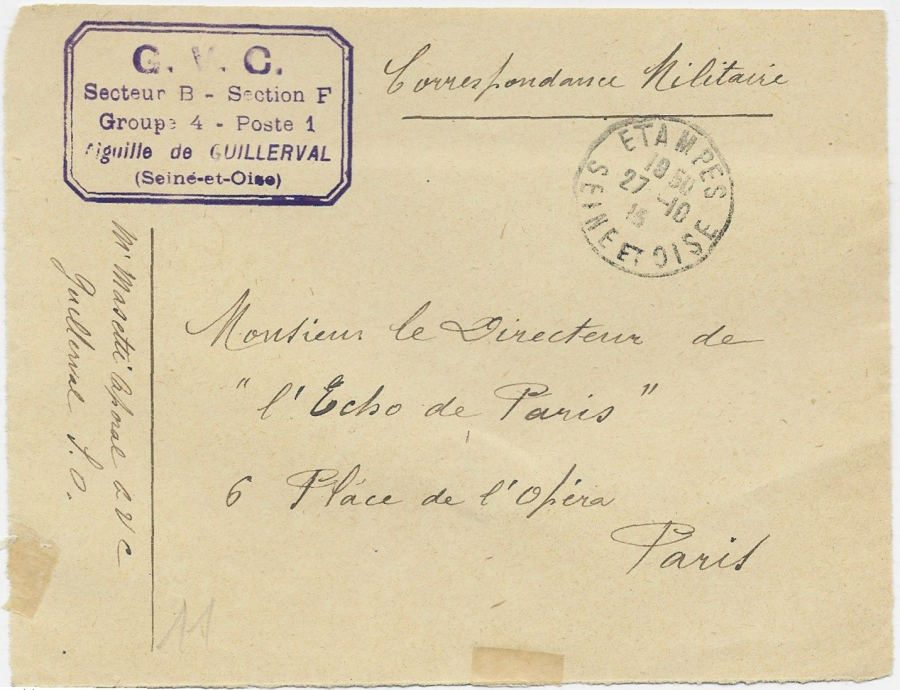 G. V. C.
Secteur B - Section F
Groupe 4 - Poste 1
Aiguille de GUILLERVAL
(Seine-et-Oise)
Correspondance Militaire
ETAMPES
18 50
27 -10
15
SEINE ET OISE
Monsieur le Directeur de
"l'Echo de Paris"
6 Place de l'Opéra
Paris
Mr Masetti Caporal G V C
Guillerval S. O.
11